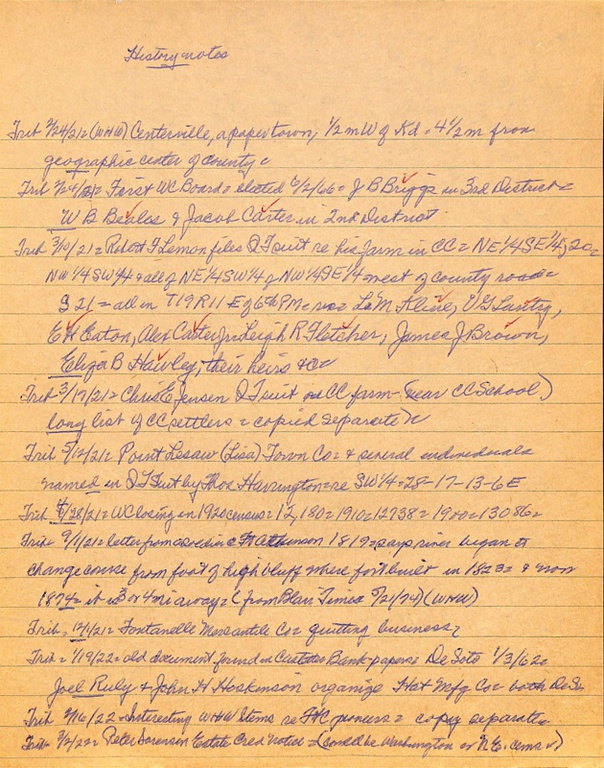 History notes
Trib 2/24/21 = (WHW) Centerville, a paper town, 1/2 m W of Kd = 4 1/2 m from
geographic center of county =
Trib 2/24/21 = First WC Board = elected 6/2/66 = J B Briggs in 3rd District =
W B Beales & Jacob Carter in 2nd District
Trib 3/10/21 = Robert F Lemon files Q T suit re his farm in CC = NE 1/4 SE 1/4, 20 =
NW 1/4 SW 1/4 & all of NE 1/4 SW 1/4 & NW 1/4 SE 1/4 west of county road =
S 21 = all in T19 R11 E of 6th PM = vs = L M Kline, V G Lantry,
E H Eaton, Alex Carter, Leigh R Fletcher, James J Brown,
Eliza B Hawley, their heirs &c =
Trib 3/17/21 = Chris E Jensen Q T suit on CC farm - (near CC School)
long list of CC settlers = copied separate
Trib 5/12/21 = Point Lesaw (Lisa) Town Co = & several individuals
named in Q T Suit by Thos Harrington = re SW 1/4 = 28 - 17 - 13 - 6 E
Trib 4/28/21 = WC losing in 1920 census = 12,180 = 1910 = 12738 = 1900 = 13086 =
Trib 9/1/21 = letter from at Atkinson 1819 = says river began to
change course from foot of high bluff where fort built in 1823 = & now
1874 = it is 3 or 4 mi away = (from Blair Times 5/21/74) (WHW)
Trib = 12/1/21 = Fontanelle Mercantile Co = quitting business
Trib = 1/19/22 = old document found in Bank papers = De Soto 1/3/62 =
Joel Ruly & John H Hoskinson organize Hat Mfg Co = both De So
Trib 2/16/22 = Interesting WHW Items re FtC pioneers = copy separate
Trib = 3/2/22 = Peter Sorensen Estate Cred Notice = (could be Washington or N.E. cems)